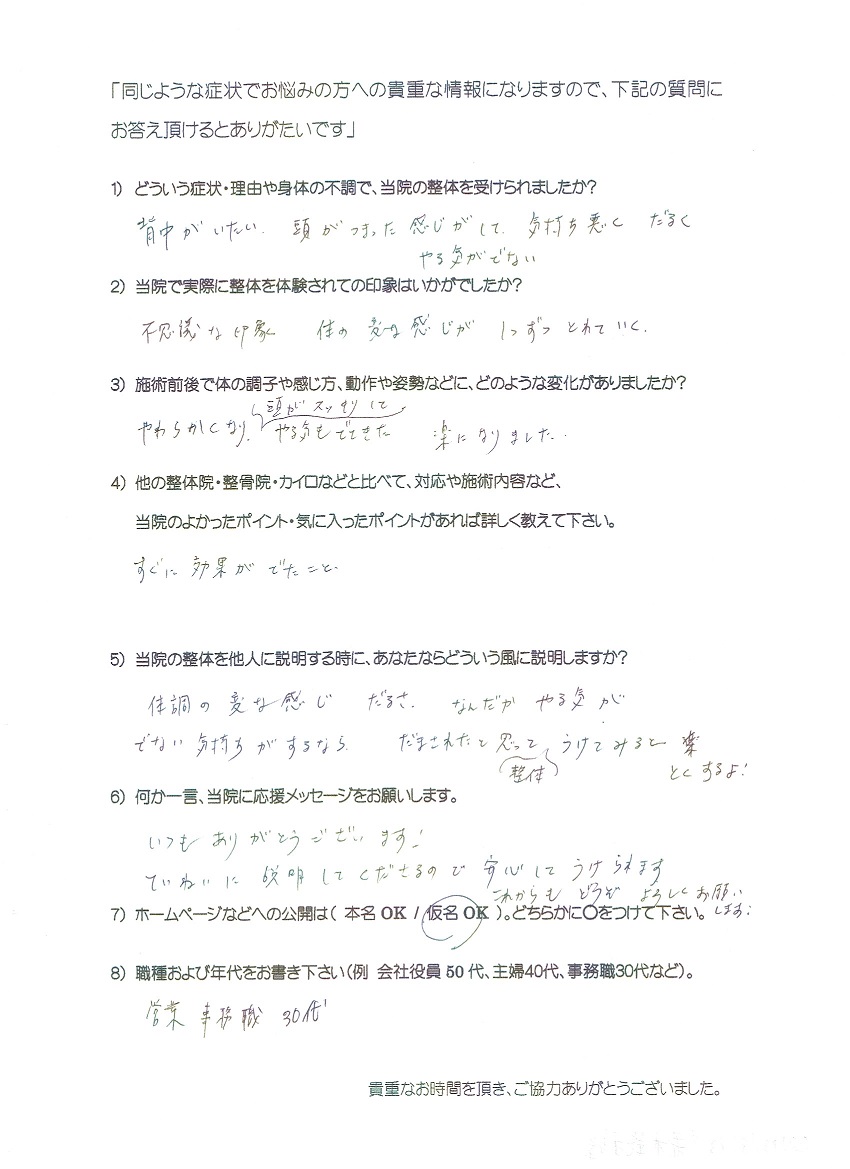 「同じような症状でお悩みの方への貴重な情報になりますので、下記の質問に
お答え頂けるとありがたいです」
1) どういう症状・理由や身体の不調で、当院の整体を受けられましたか?
背中がいたい. 頭がつまった感じがして. 気持ち悪く だるく
やる気がでない
2) 当院で実際に整体を体験されての印象はいかがでしたか?
不思議な印象 体の変な感じが 1つずつ とれていく.
3) 施術前後で体の調子や感じ方、動作や姿勢などに、どのような変化がありましたか?
頭がスッキリして
やわらかくなり. やる気もでてきた 楽になりました..
4) 他の整体院・整骨院・カイロなどと比べて、対応や施術内容など、
当院のよかったポイント・気に入ったポイントがあれば詳しく教えて下さい。
すぐに効果がでたこと.
5) 当院の整体を他人に説明する時に、あなたならどういう風に説明しますか?
体調の変な感じ だるさ. なんだか やる気が
でない気持ちがするなら. だまされたと思って うけてみると 楽
整体 とくするよ!
6) 何か一言、当院に応援メッセージをお願いします。
いつもありがとうございます!
ていねいに説明してくださるので安心してうけられます
これからもどうぞよろしくお願い
7) ホームページなどへの公開は( 本名 OK / 仮名 OK )。どちらかに〇をつけて下さい。 します!
8) 職種および年代をお書き下さい(例 会社役員 50 代、主婦40代、事務職30代など)。
営業事務職 30代
貴重なお時間を頂き、ご協力ありがとうございました。